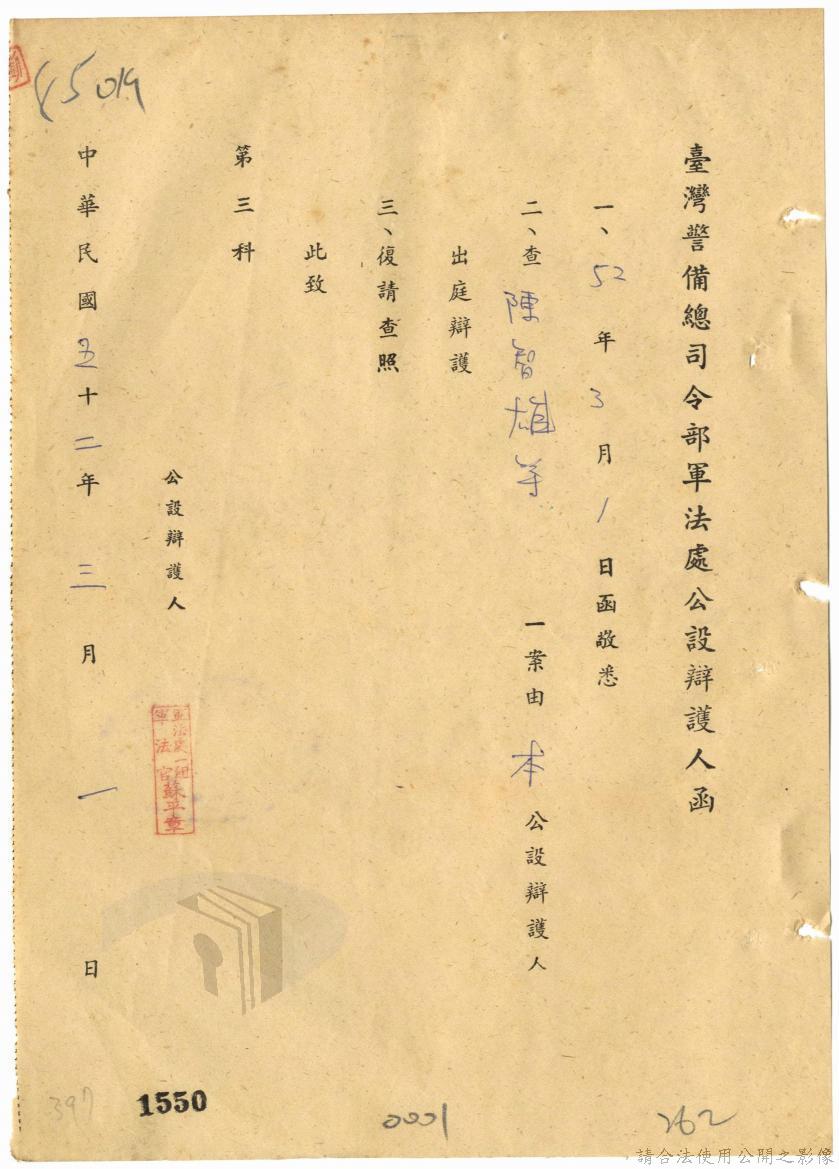 臺灣警備總司令部軍法處公設辯護人函
一、52年3月1日函敬悉
二、查陳智雄等一案由本公設辯護人
出庭辯護
三、復請查照
此致
第三科
公設辯護人
軍法處一組
軍法官蘇平章
中華民國五十二年三月一日
397
1550
0001
262
請合法使用公開之影像